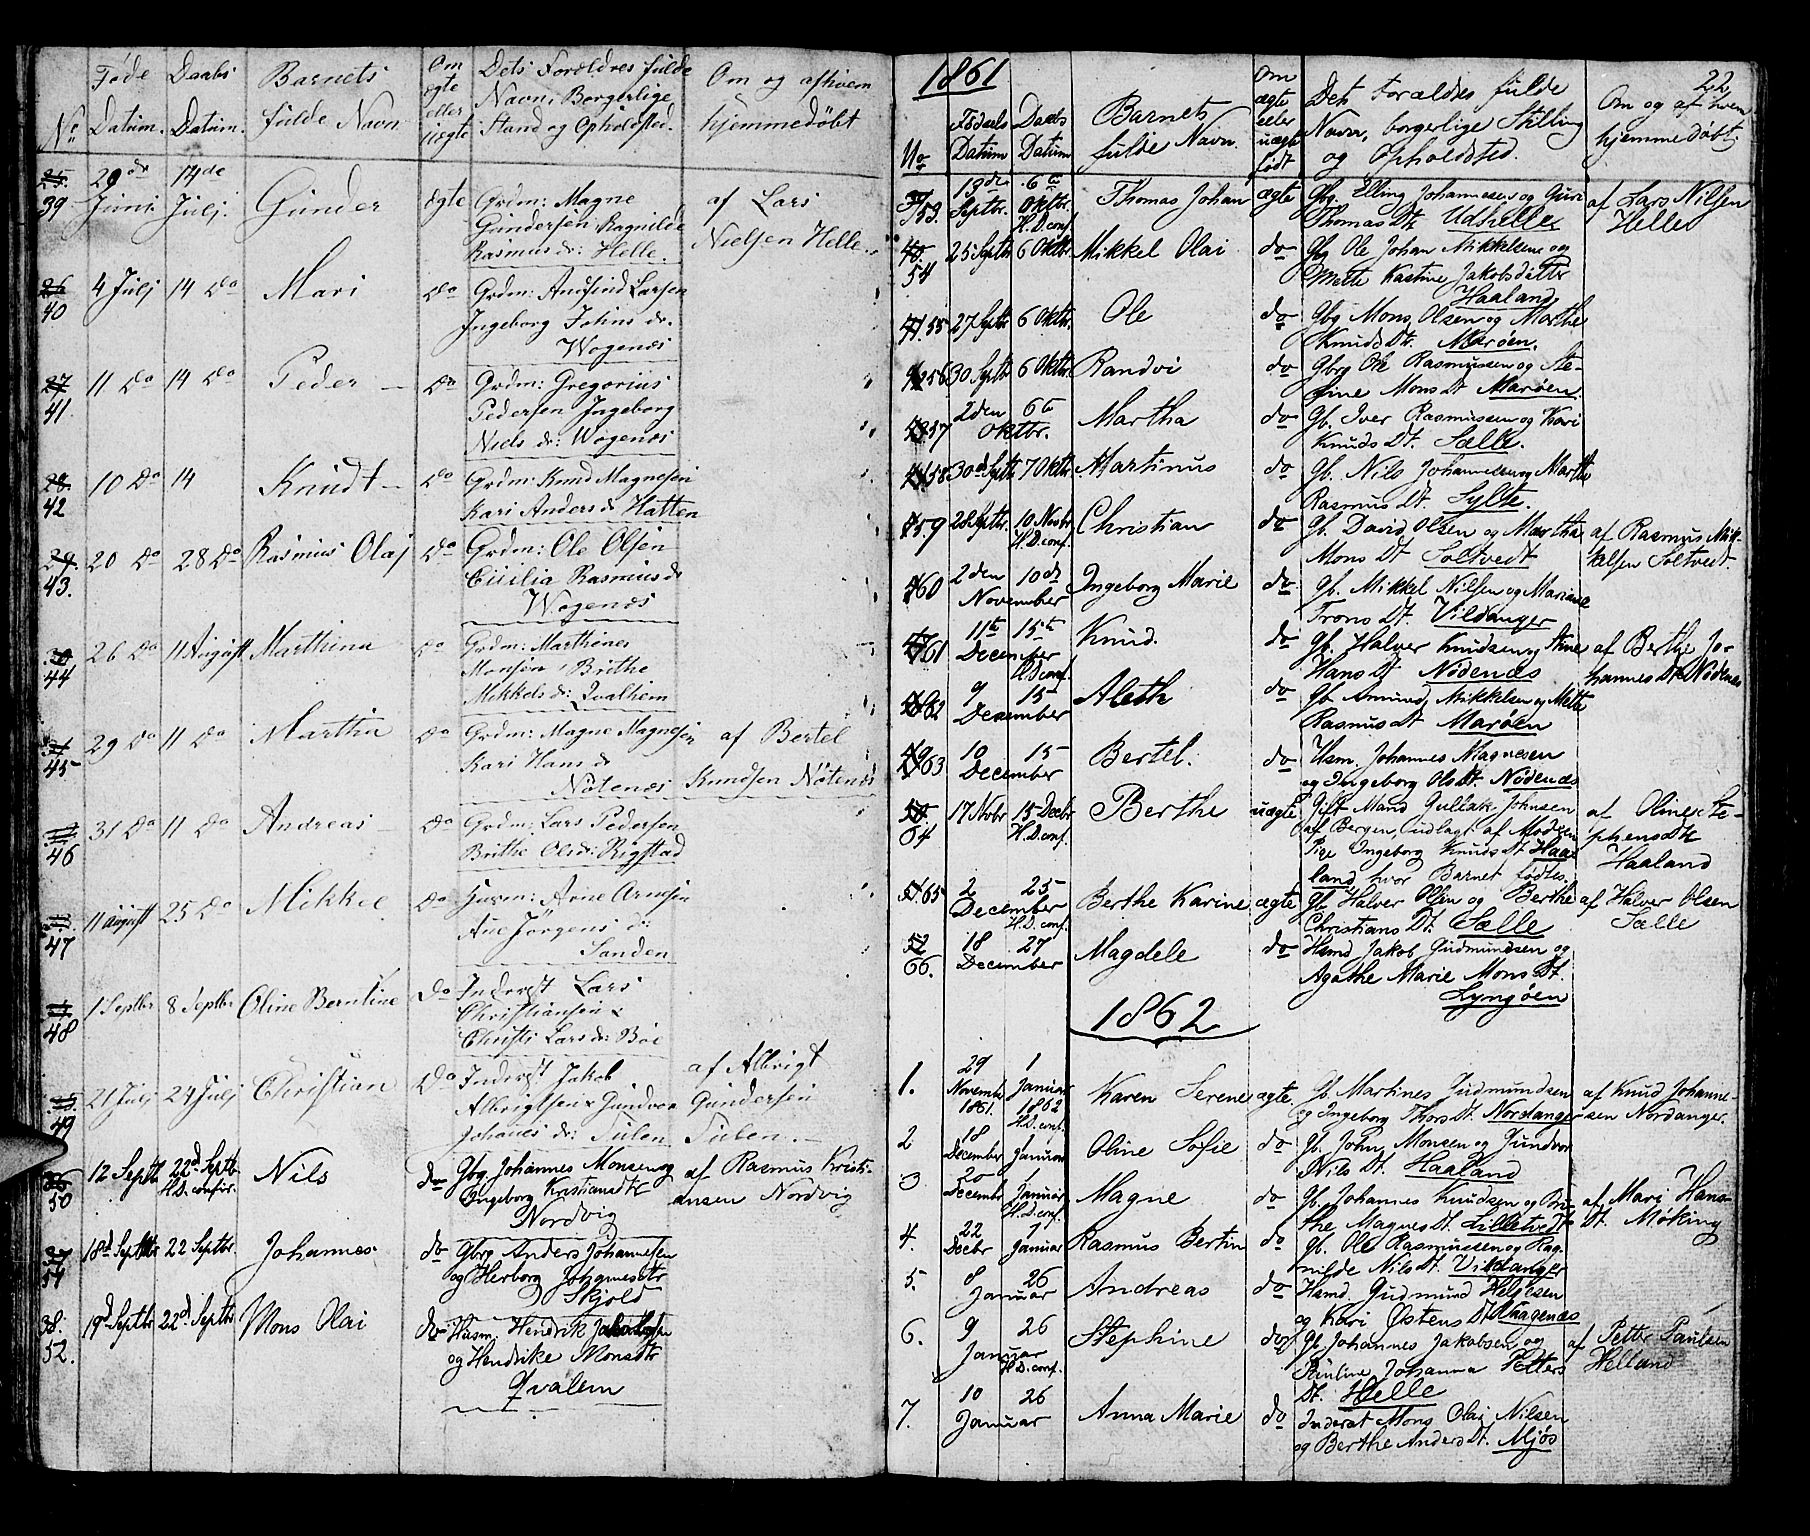 No Føde Datum. Daabs Datum. Barnets fulde Navn Om ægte eller uægte Dets Forældres fulde Navn, Borgerlige Stand og Opholdsted. Om og af hvem hjemmedøbt
25. 39 29de Juni 14de Julj. Gunder ægte Grdm: Magne af Lars
Gundersen Ragnilde Nielsen Helle.
Rasmus dr: Helle.
26 40 4 Julj 14 Do Mari Do Grdm: Amund Larsen
Ingeborg Johns dr.
Wogenæs
27 41. 11 Do 14 Do Peder Do Grdm: Gregorius
Pedersen Ingeborg
Niels dr: Wogenæs
28. 42 10 Do 14 Knudt Do Grdm: Knud Magnesen
Kari Anders dr Hatten
29. 43. 20 Do 28 Do Rasmus Olaj Do Grdm: Ole Olsen
Cicilia Rasmus dr
Wogenæs
30 44 26 Do 11 August Marthina Do Grdm: Marthines
Monsen, Brithe
Mikkels dr: Qvalhem
45 29 Do 11 Do Marthin Do Grdm: Magne Magnesen af Bertel
Kari Hans dr Knudsen Nötenæs
Nötenæs
46 31 Do 11 Do Andreas Do Grdm: Lars Pedersen
Brithe Ols dr: Rigstad
47 11 August 25 Do Mikkel Do Husm: Arne Arnesen
Ane Jörgens dr:
Sanden
48 1 Septbr 8 Septbr Oline Berntine Do Inderst Lars
Christiansen &
Christi Lars dr: Böe
49 21 Julj 24 Julj Christian Do Inderst Jakob af Albrigt
Albrigtsen & Gundvor Gundersen
Johanes dr: Tuben Tuben.
50 12 Septbr 22d Septb H.D. confir. Nils do Gbg. Johannes Monsen og af Rasmus Kristi-
Ingeborg Kristiansdtr ansen Nordvig
Nordvig
37 51 18d Septbr 22 Septbr. Johannes do Gbrg Anders Johannesen
og Herborg Johannesdtr
Skjold
38. 52. 19d Septbr 22d Septbr Mons Olai do Husm. Hendrik
og Hendrike Monsdtr
Qvalem
1861 22.
No Fødsels Datum Daabs Datum Barnets fulde Navn Om ægte eller uægte født Dets Forældres fulde Navn, borgerlige Stilling og Opholdsted. Om og af hvem hjemmedøbt
53. 13de Septbr. 6te Oktbr. H.D. conf. Thomas Johan ægte Gbg. Elling Johannesen og Guri af Lars Nilsen
Thomas Dt. Udhelle Helle
40. 54 25 Septbr 6 Oktbr. Mikkel Olai do Gbg Ole Johan Mikkelsen og
Mette Kastine Jakobsdatter
Haaland
41. 55 27 Septbr 6 Oktbr. Ole do Gbg Mons Olsen og Marthe
Knuds Dt. Marøen.
42 56 30 Septb 6 Oktbr. Randvi do Gbrg Ole Rasmussen og Ste-
fine Mons Dt Marøen.
43 57 2den 6te Oktbr. Martha do Gb. Iver Rasmussen og Kari
Knuds Dt. Sælle.
44 58 30d Septb 7 Oktbr. Martinus do Gb. Nils Johannesen og Marthe
Rasmus Dt. Sylte.
59 28 Septbr. 10 Novbr H.D. conf. Christian do Gb. David Olsen og Martha af Rasmus Mik-
Mons Dt Soltvedt kelsen Soltvedt
60 2den 10de November Ingeborg Marie do Gb. Mikkel Nilsen og Mariane
Trons Dt. Vildanger
61 11te 15te December H.D. conf. Knud. do Gb. Halver Knudsen og Ane af Berthe Jo-
Hans Dt Nödenæs hannes Dt Nödenæs
62 9 15 Dezember Aleth do Gb. Amund Mikkelsen og Mette
Rasmus Dt Marøen
49 63 10 15 December Bertel. do Husm. Johannes Magnesen
og Ingeborg Ols Dt. Nödenæs
50 64 17 Novbr 15 Decbr H.D. conf. Berthe uægte Gift Mand Gullak Johnsen af Oline Ste-
af Bergen, udlagt af Moderen phens Dt
Pige Ingeborg Knuds Dt Haa- Haaland
land, hvor Barnet fødtes.
51 65 2 25 December H.D. conf. Berthe Karine ægte Gb. Halver Olsen og Berthe af Halver Olsen
Christians Dt. Sælle Sælle
52 66. 18 27 December Magdele do Hsmd Jakob Gudmundsen og
Agathe Marie Mons Dt.
Lyngøen
1862
1. 29 Novembr 1861. 1 Januar 1862 H.D. conf. Karen Serene ægte. Gb. Martines Gudmundsen af Knud Johanne-
og Ingeborg Thors Dt. Nordanger sen Nordanger.
2 18 December 1 Januar Oline Sofie do Gb. John Monsen og Gundvor
Nils Dt. Haaland
3 20 Decembr 1 Januar H.D. conf. Magne do Gb. Johannes Knudsen og Bri- af Mari Hans
the Magnes Dt. Lilletvedt Dt. Møking
4. 22 Decbr 1 Januar Rasmus Bertin do Gb. Ole Rasmussen og Rag-
nilde Nils Dt. Vikdanger
5. 8 26 Januar Andreas do Hsmd. Gudmund Helgesen
og Kari Østens Dt Waagenæs
6. 9 26 Januar H.D. conf. Stephine do Gb. Johannes Jakobsen og af Petter Paulsen
Pauline Johanna Petters Helland
Dt. Helle
7. 10 26 Januar Anna Marie do Inderst Mons Olai Nilsen
og Berthe Anders Dt. Mjøs